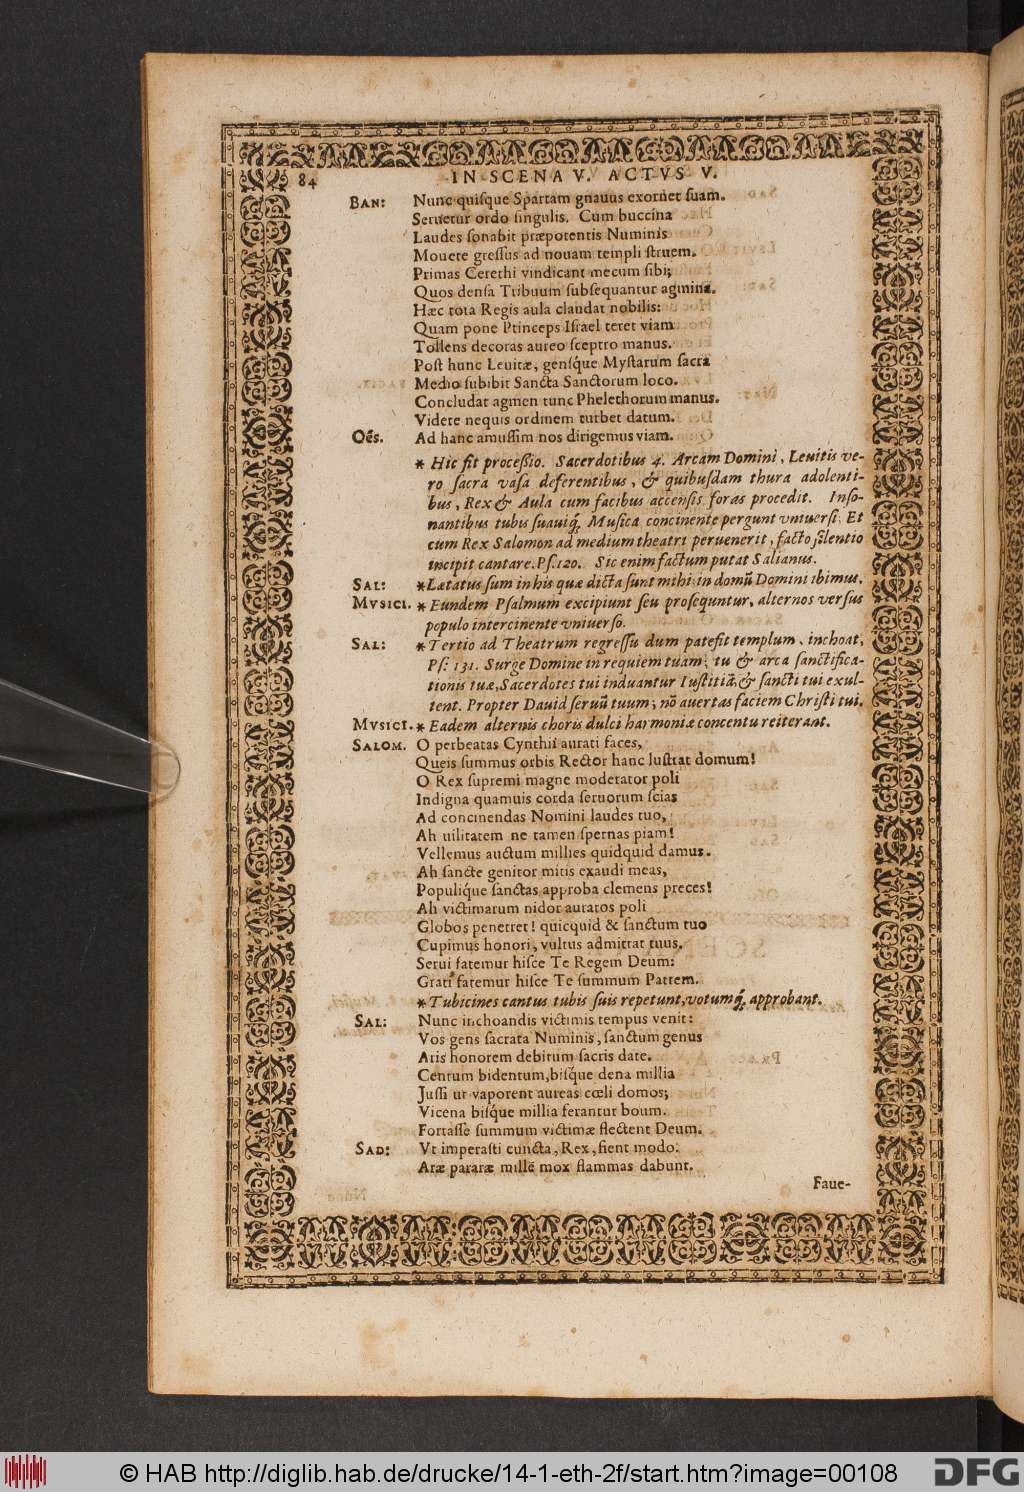 84
IN SCENA V. ACTVS V.
BAN: Nunc quiſque Spartam gnauus exornet ſuam.
Seruetur ordo ſingulis. Cum buccina
Laudes ſonabit præpotentis Numinis
Mouete greſſus ad nouam templi ſtruem.
Primas Cerethi vindicant mecum ſibi;
Quos denſa Tribuum ſubſequantur agmina.
Hæc tota Regis aula claudat nobilis:
Quam pone Princeps Iſrael teret viam
Tollens decoras aureo ſceptro manus.
Poſt hunc Leuitæ, genſq́ue Myſtarum ſacra
Medio ſubibit Sancta Sanctorum loco.
Concludat agmen tunc Phelethorum manus.
Videre nequis ordinem turbet datum.
Oẽs. Ad hanc amuſſim nos dirigemus viam.
* Hic fit proceſſio. Sacerdotibus 4. Arcam Domini, Leuitis ve-
ro ſacra vaſa deferentibus, & quibuſdam thura adolenti-
bus, Rex & Aula cum facibus accenſis foras procedit. Inſo-
nantibus tubis ſuauiq́; Muſica concinente pergunt vniuerſi. Et
cum Rex Salomon ad medium theatri peruenerit, facto ſilentio
incipit cantare. Pſ. 120. Sic enim factum putat Salianus.
SAL: *Lætatus ſum in his quæ dicta ſunt mihi: in domũ Domini ibimus.
MVSICI. * Eundem Pſalmum excipiunt ſeu proſequntur, alternos verſus
populo intercinente vniuerſo.
SAL: *Tertio ad Theatrum regreſſu dum patefit templum, inchoat,
Pſ: 131. Surge Domine in requiem tuam; tu & arca ſanctifica-
tionis tuæ, Sacerdotes tui induantur Iuſtitiã, & ſancti tui exul-
tent. Propter Dauid ſeruũ tuum; nõ auertas faciem Chriſti tui.
MVSICI. * Eadem alternis choris dulci harmoniæ concentu reiterant.
SALOM. O perbeatas Cynthii aurati faces,
Queis ſummus orbis Rector hanc luſtrat domum!
O Rex ſupremi magne moderator poli
Indigna quamuis corda ſeruorum ſcias
Ad concinendas Nomini laudes tuo,
Ah uilitatem ne tamen ſpernas piam!
Vellemus auctum millies quidquid damus.
Ah ſancte genitor mitis exaudi meas,
Populiq́ue ſanctas approba clemens preces!
Ah victimarum nidor auratos poli
Globos penetret! quicquid & ſanctum tuo
Cupimus honori, vultus admittat tuus.
Serui fatemur hiſce Te Regem Deum:
Grati fatemur hiſce Te ſummum Patrem.
* Tubicines cantus tubis ſuis repetunt, votumq́; approbant.
SAL: Nunc inchoandis victimis tempus venit:
Vos gens ſacrata Numinis, ſanctum genus
Aris honorem debitum ſacris date.
Centum bidentum, biſq́ue dena millia
Juſſi ut vaporent aureas cœli domos;
Vicena biſq́ue millia ferantur boum.
Fortaſſe ſummum victimæ flectent Deum.
SAD: Vt imperaſti cuncta, Rex, fient modo.
Aræ paratæ mille mox flammas dabunt.
Faue-
© HAB http://diglib.hab.de/drucke/14-1-eth-2f/start.htm?image=00108
DFG